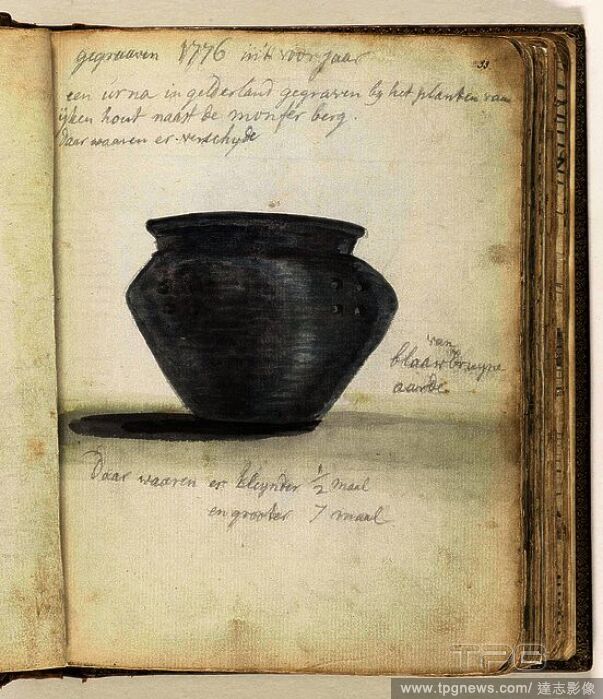 gegraaven 1776 in't voor jaar
33
een urna in gelderland gegraven by het planten van
ijken hout naast de monfer berg.
daar waaren er verschyde
van
blaauwbruyne
aarde
Daar waaren er kleynder 1/2 maal
en grooter 7 maal
TPG
www.tpgnews.com/ 達志影像